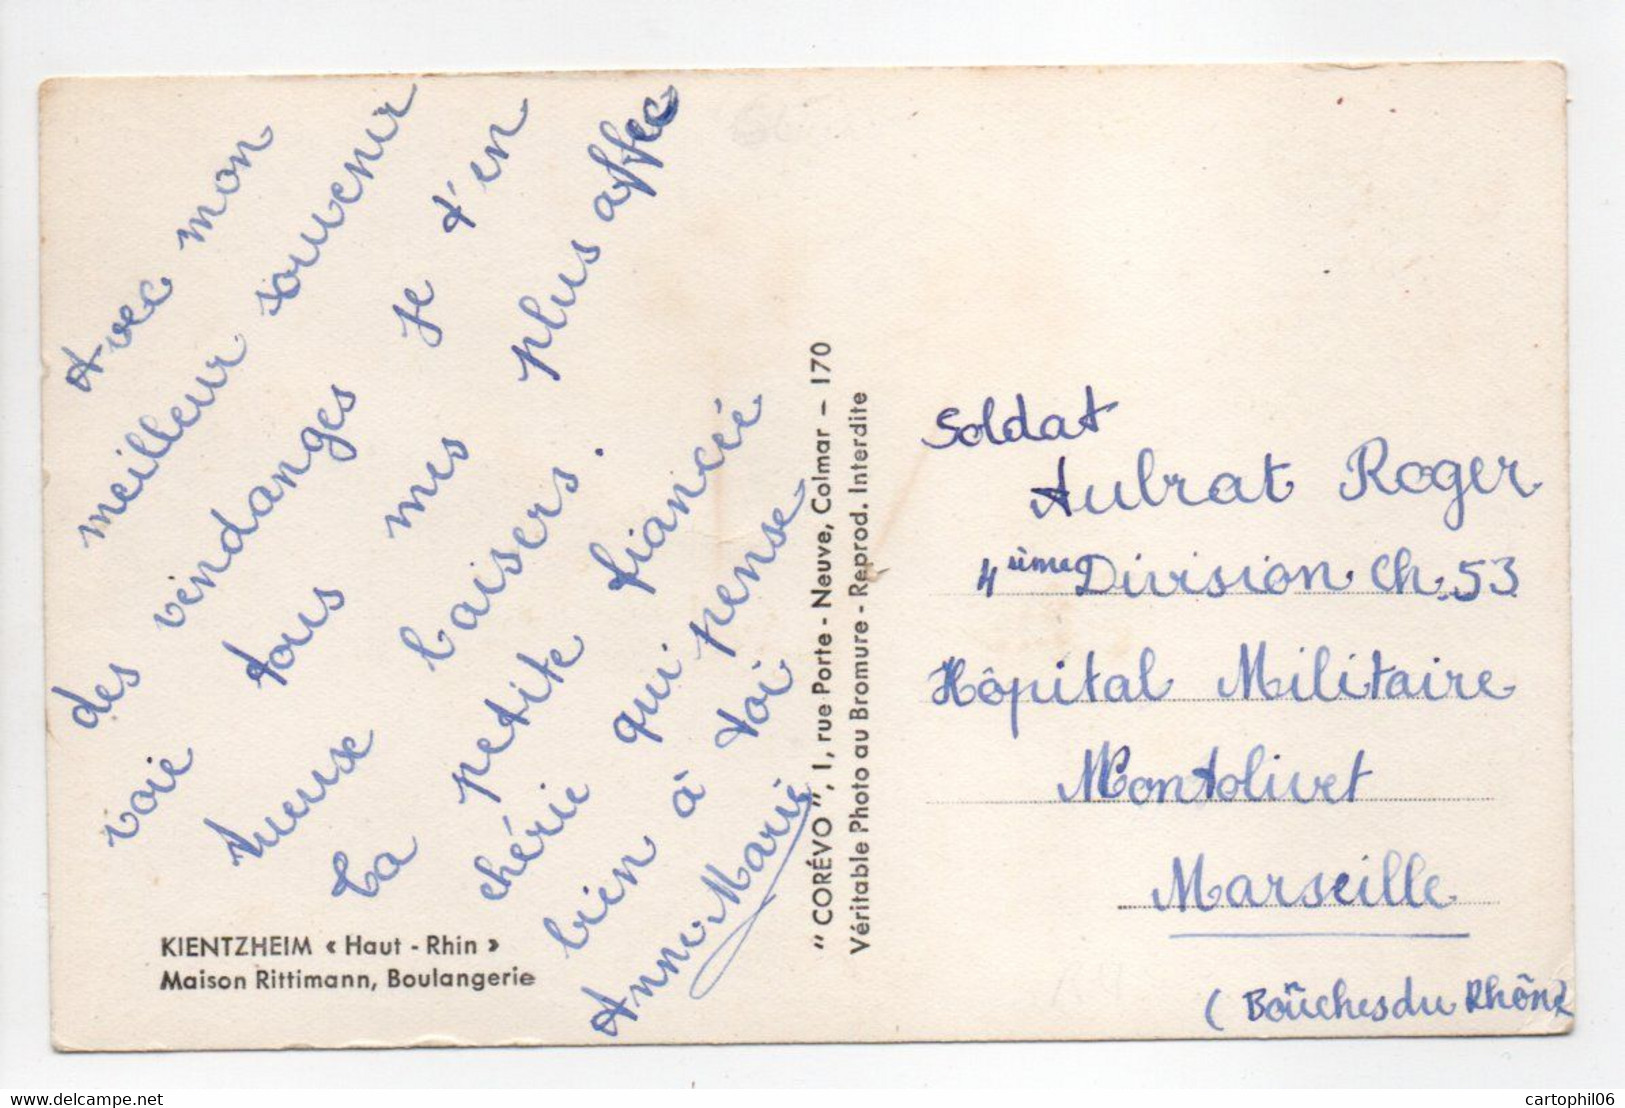 Avec mon
meilleur souvenir
des vendanges je t'en
voie tous mes plus affec
tueux baisers.
Ta petite fiancée
chérie qui pense
bien à toi
Anne-Marie
KIENTZHEIM « Haut - Rhin »
Maison Rittimann, Boulangerie
"CORÉVO", 1, rue Porte - Neuve, Colmar – 170
Véritable Photo au Bromure - Reprod. Interdite
Soldat
Aubrat Roger
4ième Division Ch.53
Hôpital Militaire
Montolivet
Marseille
(Boûches du Rhône
cartophil06